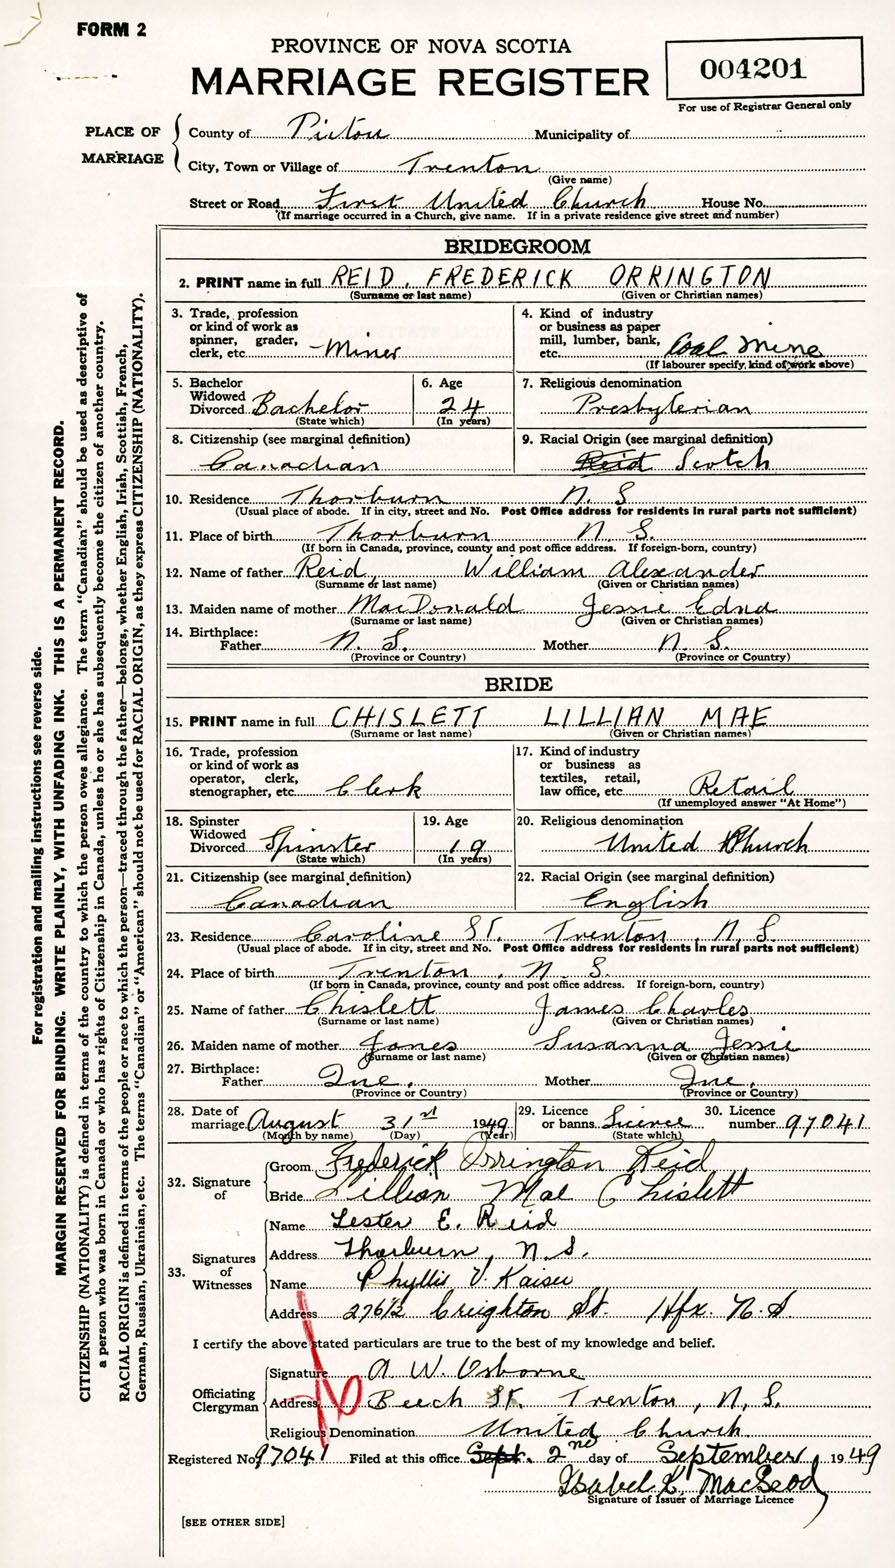 FORM 2
PROVINCE OF NOVA SCOTIA
MARRIAGE REGISTER
004201
For use of Registrar General only
PLACE OF MARRIAGE
County of Pictou Municipality of
City, Town or Village of Trenton
(Give name)
Street or Road First United Church House No.
(If marriage occurred in a Church, give name. If in a private residence give street and number)
BRIDEGROOM
2. PRINT name in full REID, FREDERICK ORRINGTON
(Surname or last name) (Given or Christian names)
3. Trade, profession or kind of work as spinner, grader, clerk, etc. Miner
4. Kind of industry or business as paper mill, lumber, bank, etc. Coal Mine
(If labourer specify kind of work above)
5. Bachelor Widowed Divorced Bachelor
(State which)
6. Age 24
(In years)
7. Religious denomination
Presbyterian
8. Citizenship (see marginal definition)
Canadian
9. Racial Origin (see marginal definition)
Reid Scotch
10. Residence Thorburn N. S
(Usual place of abode. If in city, street and No. Post Office address for residents in rural parts not sufficient)
11. Place of birth Thorburn N. S.
(If born in Canada, province, county and post office address. If foreign-born, country)
12. Name of father Reid William Alexander
(Surname or last name) (Given or Christian names)
13. Maiden name of mother MacDonald Jessie Edna
(Surname or last name) (Given or Christian names)
14. Birthplace:
Father N. S. Mother N. S.
(Province or Country) (Province or Country)
BRIDE
15. PRINT name in full CHISLETT LILLIAN MAE
(Surname or last name) (Given or Christian names)
16. Trade, profession or kind of work as operator, clerk, stenographer, etc. Clerk
17. Kind of industry or business as textiles, retail, law office, etc. Retail
(If unemployed answer "At Home")
18. Spinster Widowed Divorced Spinster
(State which)
19. Age 19
(In years)
20. Religious denomination
United Church
21. Citizenship (see marginal definition)
Canadian
22. Racial Origin (see marginal definition)
English
23. Residence Caroline St. Trenton, N. S.
(Usual place of abode. If in city, street and No. Post Office address for residents in rural parts not sufficient)
24. Place of birth Trenton, N. S.
(If born in Canada, province, county and post office address. If foreign-born, country)
25. Name of father Chislett James Charles
(Surname or last name) (Given or Christian names)
26. Maiden name of mother Jones Susanna Jessie
(Surname or last name) (Given or Christian names)
27. Birthplace:
Father Mother
(Province or Country) (Province or Country)
28. Date of marriage August 31st 1949
(Month by name) (Day) (Year)
29. Licence or banns Licence
(State which)
30. Licence number 97041
32. Signature of
Groom Frederick Orrington Reid
Bride Lillian Mae Chislett
33. Signatures of Witnesses
Name Lester E. Reid
Address Thorburn, N. S.
Name Phyllis V. Kaiser
Address 276½ Creighton St. Hfx. N. S
I certify the above stated particulars are true to the best of my knowledge and belief.
Officiating Clergyman
Signature A. W. Osborne
Address Beech St. Trenton, N. S.
Religious Denomination United Church
Registered No. 97041 Filed at this office Sept. 2nd day of September 1949
Isabel K. MacLeod
Signature of Issuer of Marriage Licence
[SEE OTHER SIDE]
For registration and mailing instructions see reverse side.
MARGIN RESERVED FOR BINDING. WRITE PLAINLY, WITH UNFADING INK. THIS IS A PERMANENT RECORD.
CITIZENSHIP (NATIONALITY) is defined in terms of the country to which the person owes allegiance. The term "Canadian" should be used as descriptive of
a person who was born in Canada or who has rights of Citizenship in Canada, unless he or she has subsequently become the citizen of another country.
RACIAL ORIGIN is defined in terms of the people or race to which the person—traced through the father—belongs, whether English, Irish, Scottish, French,
German, Russian, Ukrainian, etc. The terms "Canadian" or "American" should not be used for RACIAL ORIGIN, as they express CITIZENSHIP (NATIONALITY).